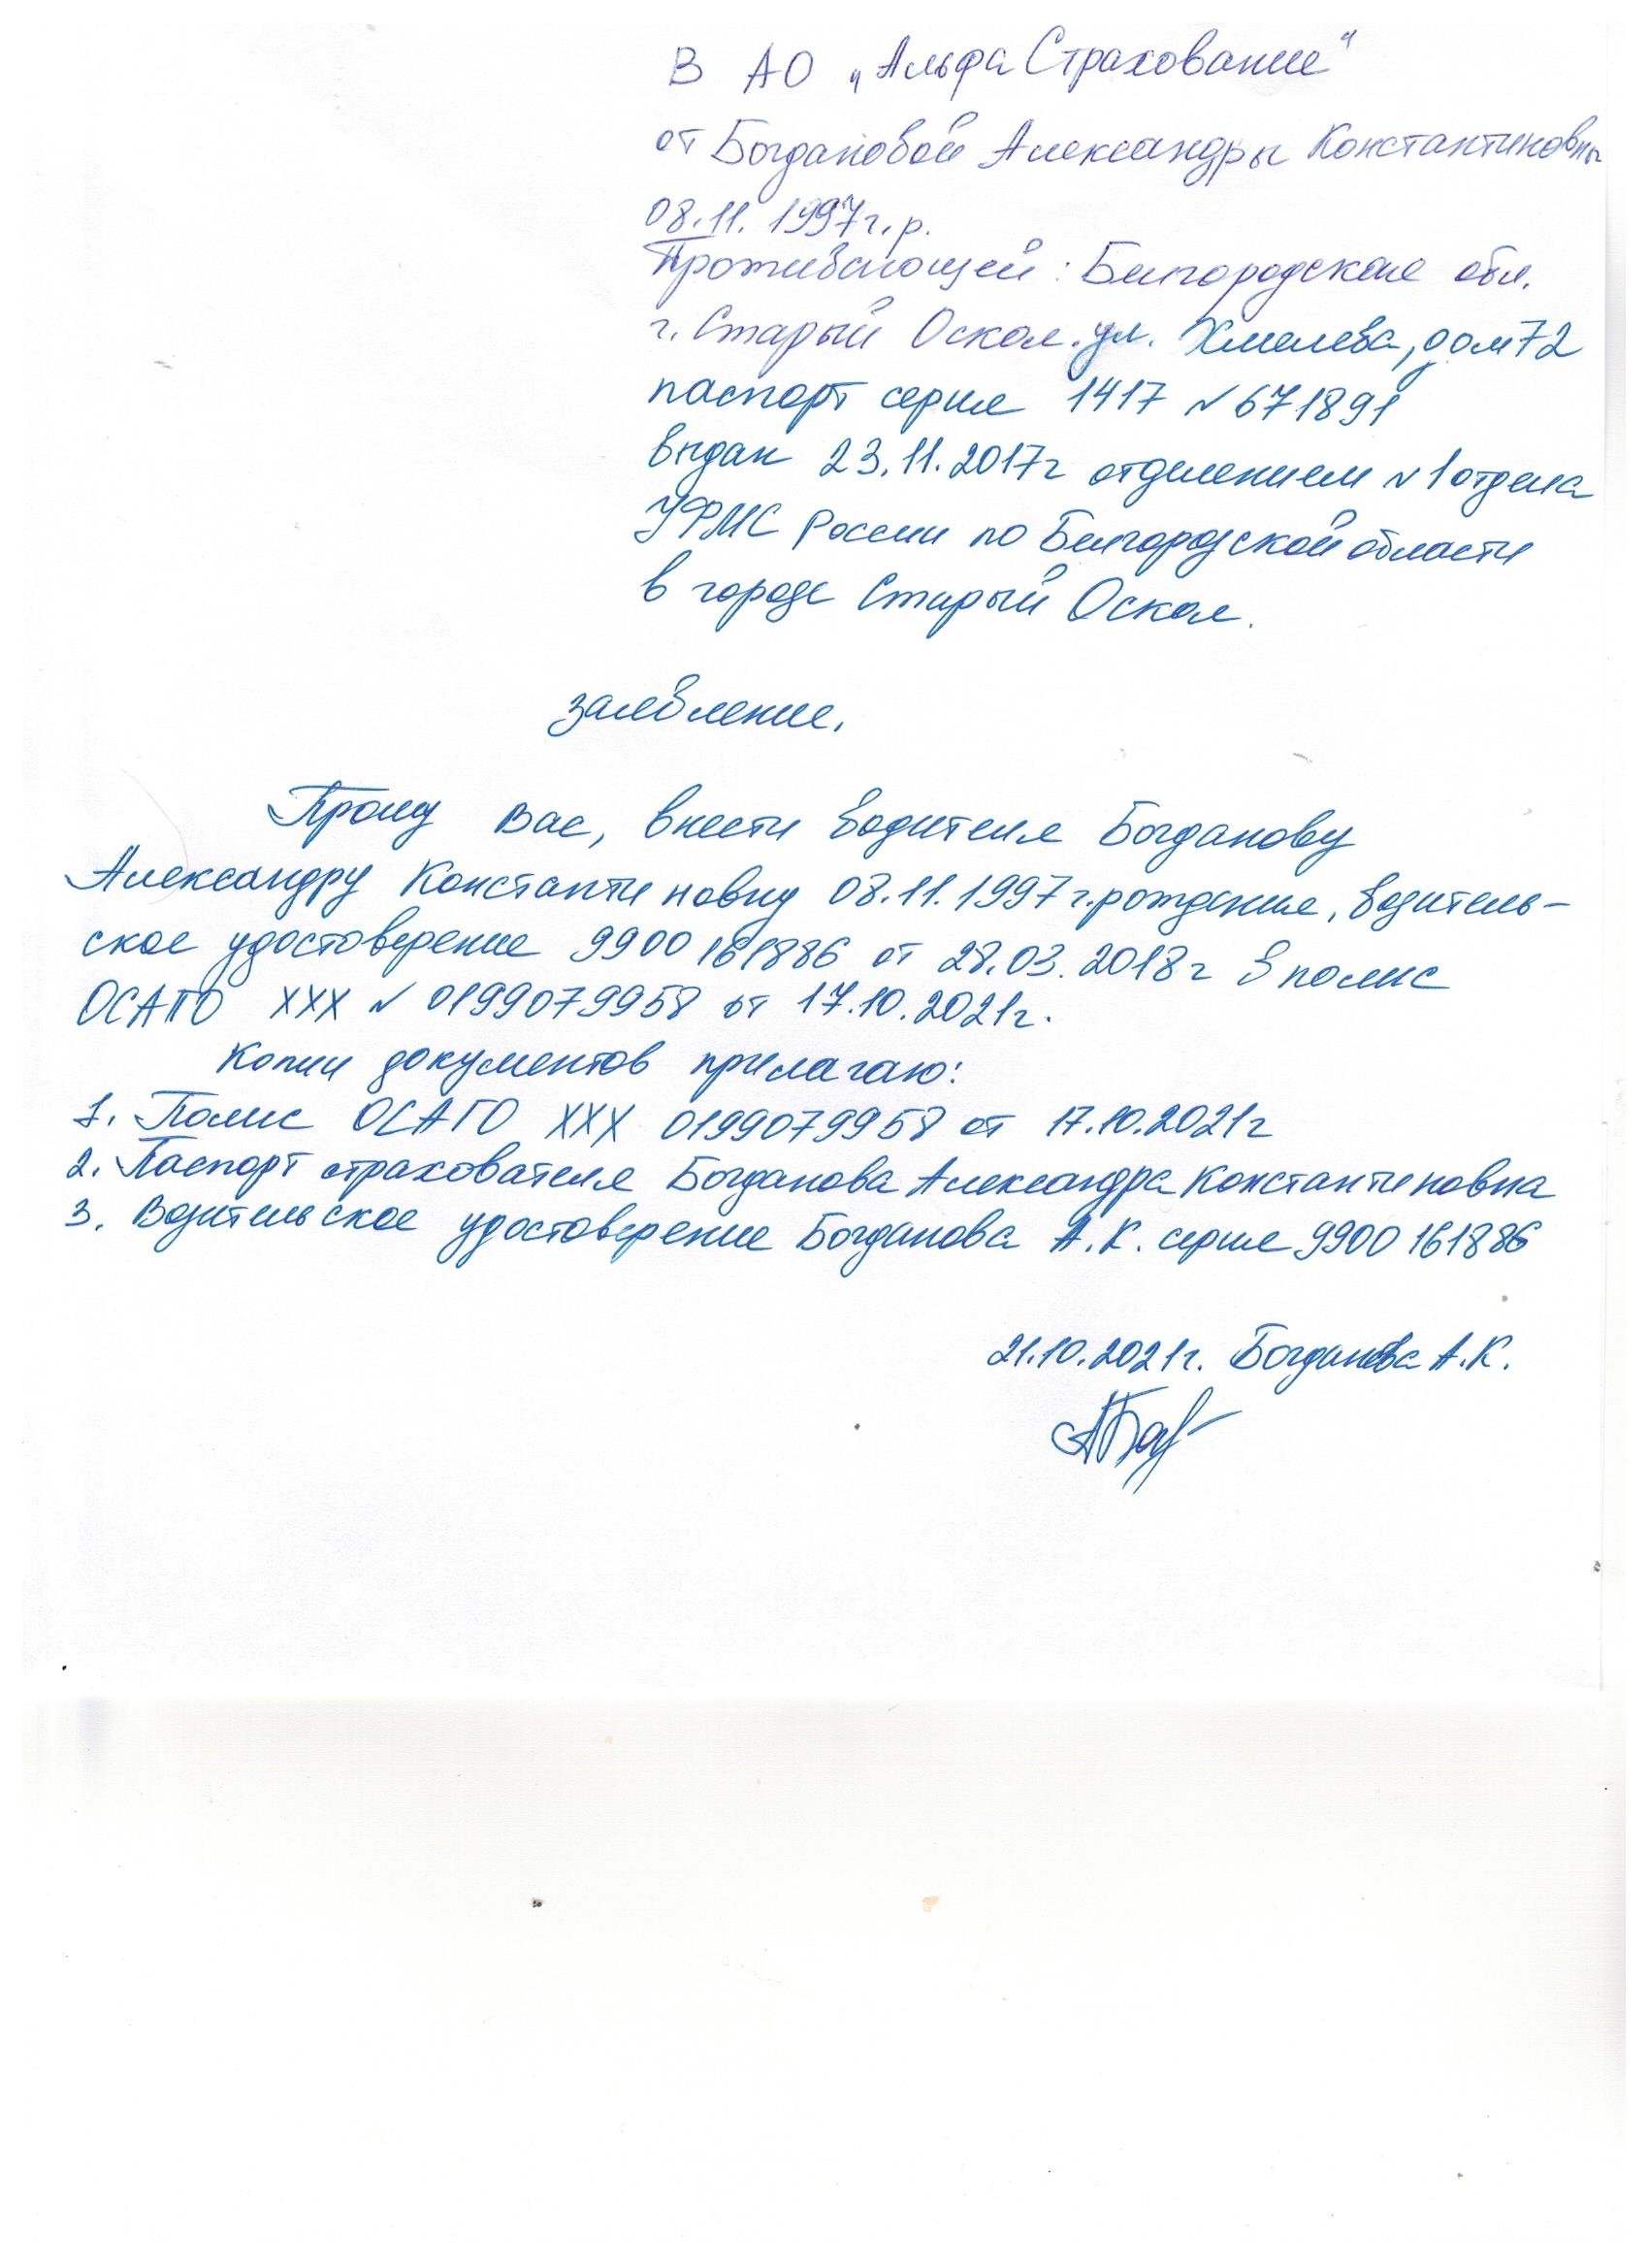 В АО „АльфаСтрахование“
от Богдановой Александры Константиновны
08.11.1997г.р.
Проживающей: Белгородская обл.
г. Старый Оскол. ул. Хмелева, дом 72
паспорт серия 1417 № 671891
выдан 23.11.2017г отделением №1 отдела
УФМС России по Белгородской области
в городе Старый Оскол.
заявление.
Прошу Вас, внести водителя Богданову
Александру Константиновну 08.11.1997г.рождения, водитель-
ское удостоверение 9900 161886 от 28.03.2018г в полис
ОСАГО ХХХ № 0199079958 от 17.10.2021г.
Копии документов прилагаю:
1. Полис ОСАГО ХХХ 0199079958 от 17.10.2021г
2. Паспорт страхователя Богданова Александра Константиновна
3. Водительское удостоверение Богданова А.К. серия 9900 161886
21.10.2021г. Богданова А.К.